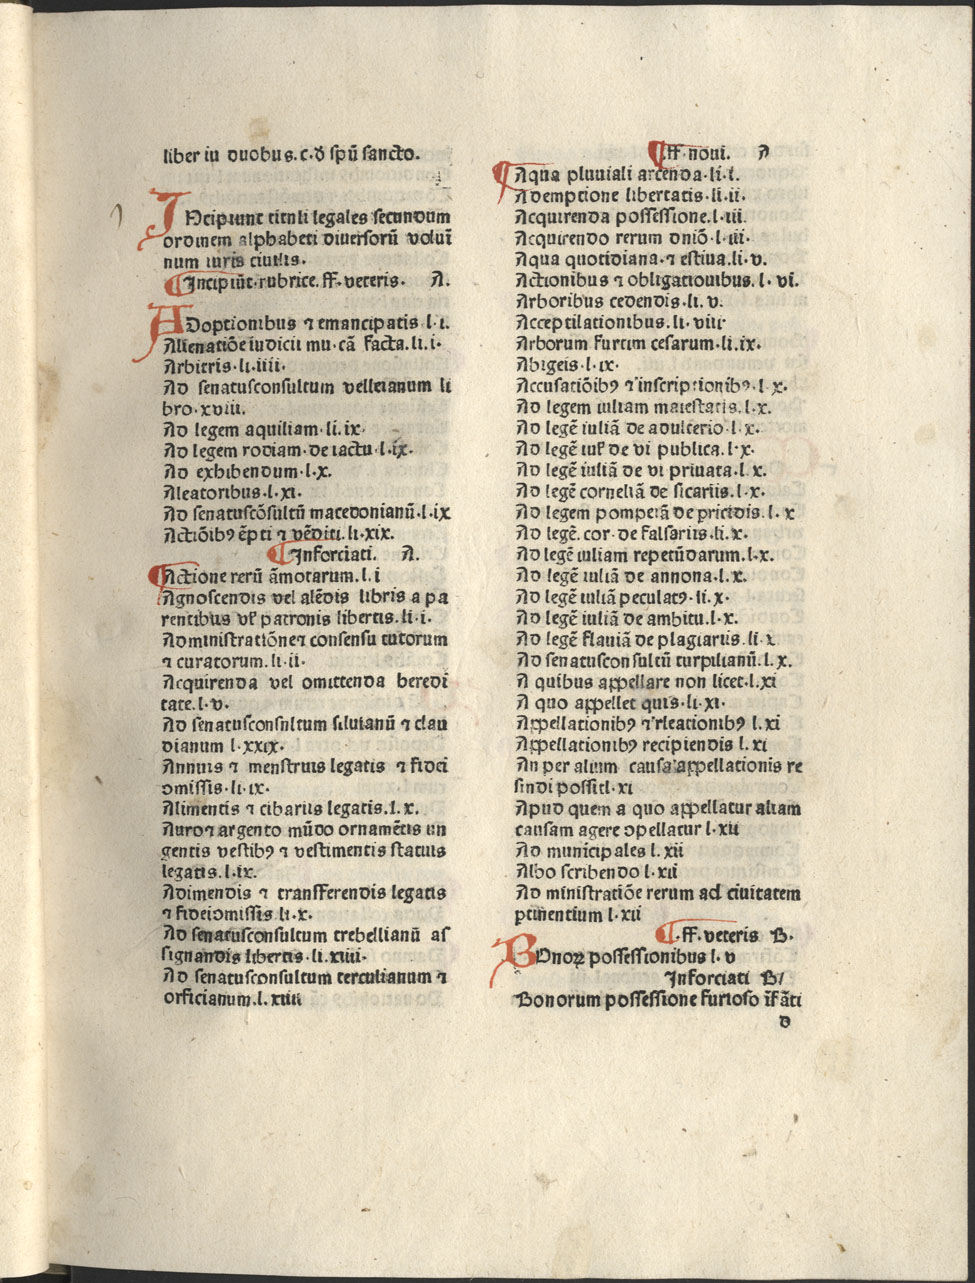 liber iu duobus. c. đ spũ sancto.
INcipiunt titnli legales secundum
ordinem alphabeti diuersorũ voluĩ
num iuris ciuilis.
¶Incipiũt·rubrice.ff·veteris· A.
ADoptionibus ⁊ emancipatis l·i.
Alienatiõe iudicii mu·cã facta.li.i·
Arbitris·li·iiii·
Ad senatusconsultum velleianum li
bro·xviii.
Ad legem aquiliam·li.ix·
Ad legem rodiam·de iactu·l·ix·
Ad exhibendum·l·x.
Aleatoribus·l·xi·
Ad senatuscõsultũ macedonianũ·l·ix
Actiõibꝯ ẽpti ⁊ vẽditi.li·xix.
¶Inforciati. A.
¶Actione rerũ ãmotarum.l.i
Agnoscendis vel alẽdis libris a pa
rentibus vł patronis libertis.li·i·
Administratiõne⁊ consensu tutorum
⁊ curatorum.li·ii·
Acquirenda vel omittenda heredi
tate.l·v.
Ad senatusconsultum siluianũ ⁊ clau
dianum l·xxix·
Annuis ⁊ menstruis legatis ⁊ fidei
ɔmissis·li·ix·
Alimentis ⁊ cibariis legatis.l.x.
Auro⁊ argento mũdo ornamẽtis un
gentis vestibꝯ ⁊ vestimentis statuis
legatis.l·ix.
Adimendis ⁊ transfferendis legatis
⁊ fideiɔmissis li·x·
Ad senatusconsultum trebellianũ as
signandis libertis·li.xiiii·
Ad senatusconsultum terculianum ⁊
orficianum.l.xiiii
¶.ff·noui. A
¶Aqua pluuiali arcenda·li·i.
Ademptione libertatis·li·ii·
Acquirenda possessione.l·iii.
Acquirendo rerum dniõ·l·iii·
Aqua quotidiana·⁊ estiua.li·v.
Actionibus ⁊ obligationibus.l·vi.
Arboribus cedendis·li.v.
Acceptilationibus.li·viii·
Arborum furtim cesarum·li.ix·
Abigeis·l·ix·
Accusatiõibꝯ ⁊ inscriptionibꝯ·l x·
Ad legem iuliam maiestatis.l·x.
Ad legẽ iuliã de adulterio·l·x·
Ad legẽ iuł de vi publica.l·x·
Ad legẽ iuliã de vi priuata·l x.
Ad legẽ corneliã de sicariis.l·x·
Ad legem pompeiã de pricidis.l·x
Ad legẽ.cor·de falsariis.li.x·
Ad legẽ iuliam repetũdarum.l·x.
Ad legẽ iuliã de annona.l.x.
Ad legẽ iuliã peculatꝯ·li.x·
Ad legẽ iuliã de ambitu.l·x.
Ad legẽ flauiã de plagiariis.li·x
Ad senatusconsultũ turpilianũ.l.x.
A quibus appellare non licet·l.xi
A quo appellet quis·li·xi·
Appellationibꝯ ⁊ rleationibꝯ l.xi
Appellationibꝯ recipiendis l.xi
An per alium causa appellationis re
sindi possitl·xi
Apud quem a quo appellatur aliam
causam agere ɔpellatur l·xii
Ad municipales l.xii
Albo scribendo l·xii
Ad ministratiõe rerum ad ciuitatem
ptinentium l·xii
¶·ff·veteris B·
BOnoꝝ possessionibus l·v
Inforciati B/
Bonorum possessione furioso ĩfãti
d